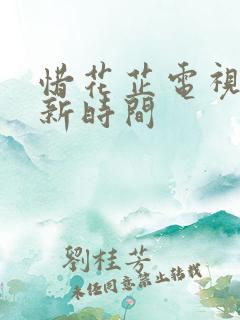 惜花芷電視
新時間
劉桂芳
未经同意禁止转载